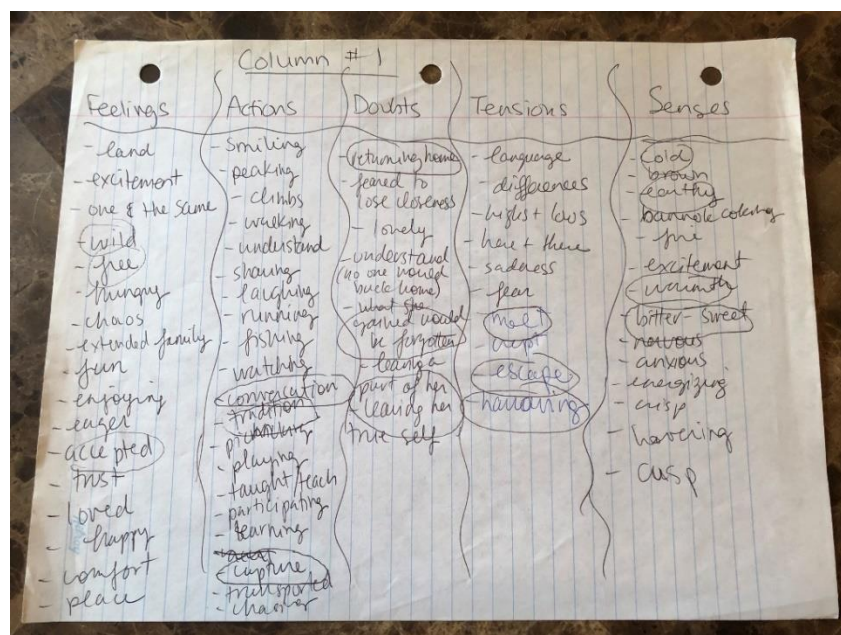 Column #1
Feelings
- land
- excitement
- one & the same
- wild
- free
- hungry
- chaos
- extended family
- fun
- enjoying
- eager
- accepted
- trust
- loved
- happy
- comfort
- peace
Actions
- smiling
- peaking
- climbs
- walking
- understand
- sharing
- laughing
- running
- fishing
- watching
- tradition
- playing
- taught/teach
- participating
- learning
- capture
- transported
Doubts
- returning home
- feared to
lose closeness
- lonely
- understand
(no one would
back home)
- what she
gained would
be forgotten
- leaving a
part of her
- leaving her
true self
Tensions
- language
- differences
- highs + lows
- here + there
- sadness
- fear
- melt
- escape
Senses
- cold
- brown
- earthy
- bannock
- excitement
- warmth
- bitter-sweet
- nervous
- anxious
- energizing
- crisp
- hovering
- cusp